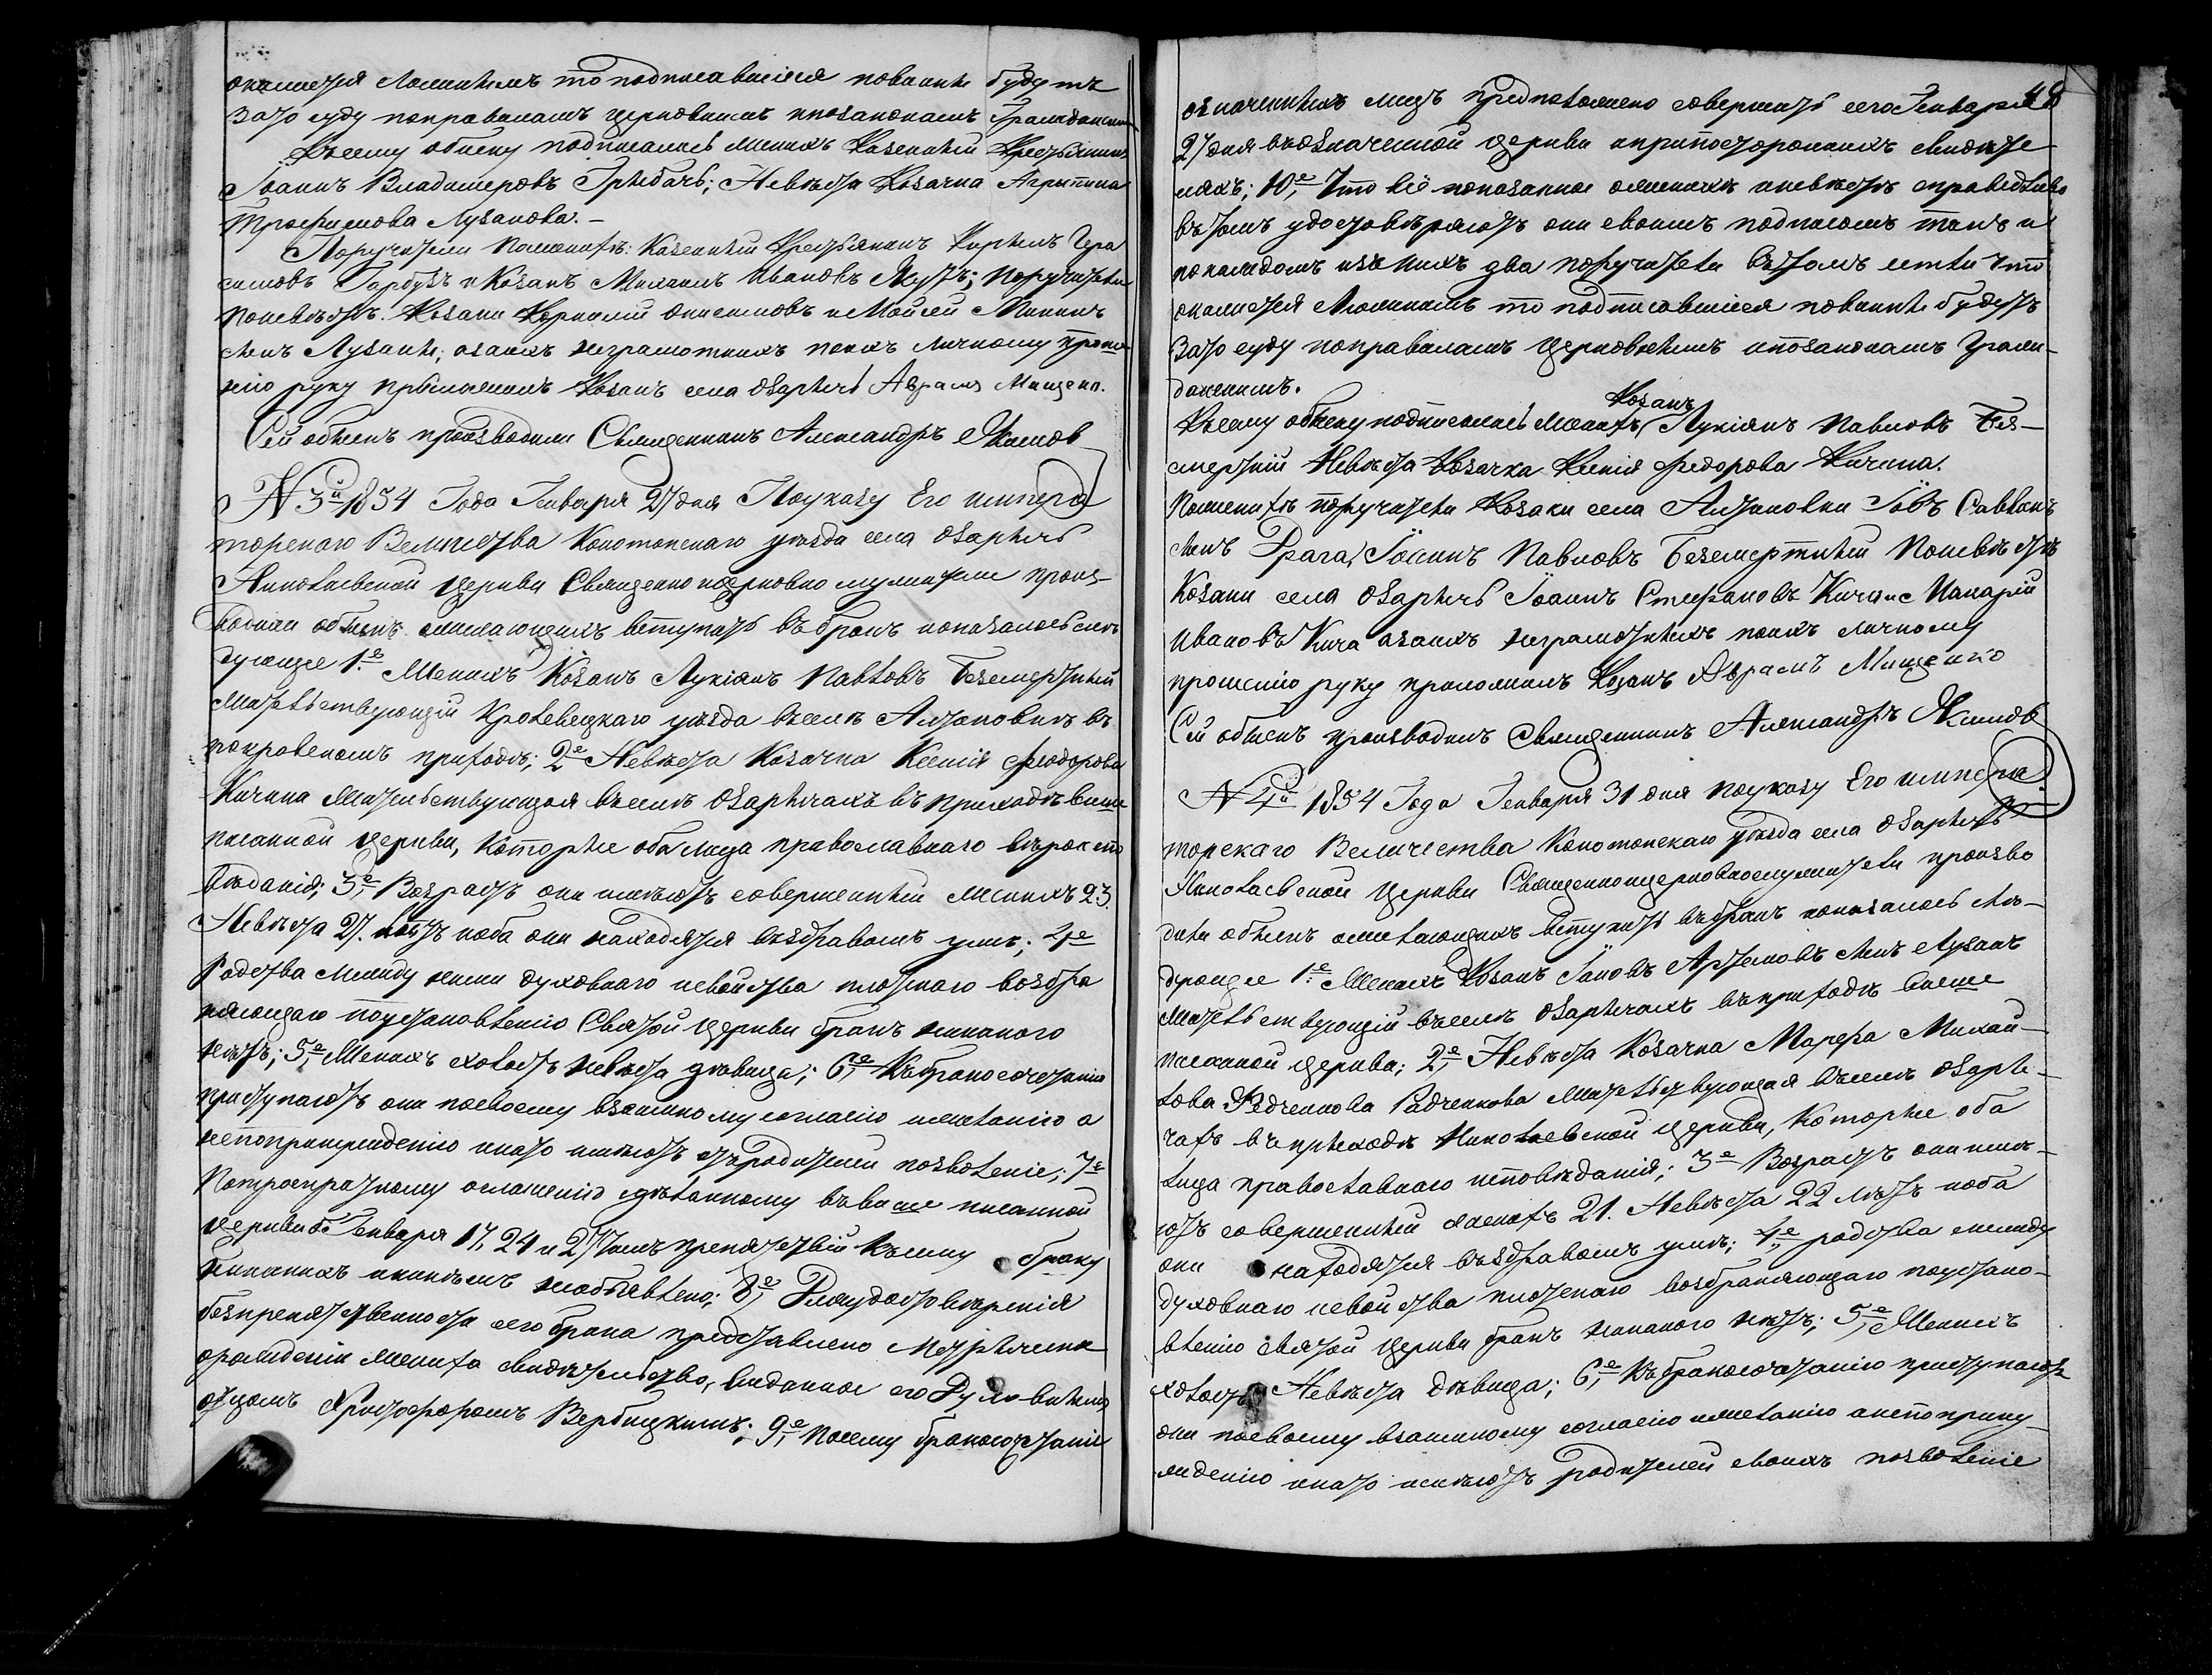 окажется Ложнымъ то подписавшіеся повинны будутъ
зато суду поправиламъ церковнымъ ипозаконамъ Граждански
Ксему обыску подписались Женихъ Казенный Крестьянинъ
Іоаннъ Владимеровъ Грыбачъ; Невѣста Козачка Агрыпина
Трофимова Лузанова.-
Поручители Поженихѣ: Казенный Крестьянинъ Кирылъ Гера
симовъ Гарбузъ и Козакъ Михаилъ Ивановъ Якутъ; поручители
поневѣстѣ. Козаки Корнилій Онисимовъ и Мойсей Мининъ
сынъ Лузаны; азаихъ неграмотныхъ поихъ личному проше
нію руку приложилъ Козакъ села Озарычь Аврамъ Мищенко.
Сей обыскъ производили Священникъ Александръ Якимов
N 3й 1854 Года Генваря 27 дня Поуказу Его импера
торскаго Величества Конотопскаго уѣзда села Озарычь
Николаевской Церкви Священно ицерковно служители произ-
водили обыскъ ожелающихъ вступать въ бракъ ипоказалось слѣ
дующее 1е Женихъ Козакъ Лукіянъ Павловъ Безсмертный
Жительствующій Кролевецкаго уѣзда въселѣ Алтиновкѣ въ
покровскомъ приходѣ; 2е Невѣста Козачка Ксенія Феодорова
Кичина Жительствующая въселѣ Озарычахъ въ приходѣ выше
писанной Церкви, Которые оба лица православнаго вѣроиспо
вѣданія; 3е, Возрастъ они имѣютъ совершенный Женихъ 23.
Невѣста 27. лѣтъ иоба они находятся въздравомъ умѣ; 4е
Родства между ними духовнаго исвойства плотскаго возбра
няющаго поустановленію Святой Церкви бракъ никакого
нѣтъ; 5е, Женихъ холостъ невѣста дѣвица; 6е, Къбракосочетанію
приступаютъ они посвоему взаимному согласію ижеланію а
непопринужденію инато имѣютъ отъродителей позволеніе; 7е
Потроекратному оглашенію сдѣланному въвыше писанной
церкви Генваря 17, 24 и 27 числъ препятствій ксему браку
никакихъ никѣмъ необъявлено; 8е, Для удостовѣренія
безпрепятственности сего брака представлено Метрическое
орожденіи жениха свидѣтельство, виданное его Духовнымъ
отцомъ Христофоромъ Вербицкимъ; 9е, посему бракосочетаніе
48
означенныхъ лицъ предположено совершить сего Генваря
27 дня въозначенной церкви иприпостороннихъ свидѣте
ляхъ; 10,е Что всё показанное оженихѣ иневѣстѣ справедливо
въэтомъ удостовѣряютъ они своимъ подписомъ такъ и
покаждомъ изъ нихъ два поручителя въэтомъ если что
окажется Ложнымъ то подписавшіеся повинны будутъ
Зато суду поправиламъ Церковнымъ ипозаконамъ Граж-
данскимъ.
Козакъ
Ксему обыску подписались Женихъ, Лукіянъ Павловъ Без-
смертній Невѣста Козачка Ксенія Федорова Кичена.
Поженихѣ поручители Козаки села Алтиновки Іовъ Саввинъ
сынъ Драга, Іоаннъ Павловъ Безсмертный Поневѣстѣ
Козаки села Озарычь Іоаннъ Стефановъ Кича и Макарій
Ивановъ Кича азаихъ неграмотныхъ поихъ личному
прошенію руку приложилъ Козакъ Аврамъ Мищенко
Сей обыскъ производилъ Священникъ Александръ Якимовъ
N 4й 1854 Года Генваря 31 дня поуказу Его импера
торскаго Величества Конотопскаго уѣзда села Озарычь
Николаевской церкви Священноицерковнослужители произво
дили обыскъ ожелающихъ вступить въбракъ ипоказалось слѣ-
дующее 1е Женихъ Козакъ Іаковъ Артемовъ сынъ Лузанъ
Жительствующій въселѣ Озарычахъ въприходѣ выше
писанной церкви; 2,е Невѣста Козачка Марфа Михай-
лова Радченкова Жительствующая въселѣ Озары-
чахъ въ приходѣ Николаевской церкви, Которые оба
лица православнаго исповѣданія; 3е Возрастъ они имѣ-
ютъ совершенный женихъ 21. Невѣста 22 лѣтъ иоба
они находятся въздравомъ умѣ; 4,е родства между
духовнаго исвойства плотскаго возбраняющаго поустано-
вленію святой Церкви бракъ никакого нѣтъ; 5,е Женихъ
холостъ Невѣста дѣвица; 6,е Къбракосочетанію приступаютъ
они посвоему взаимному согласію ижеланію анепоприну-
жденію инато имѣютъ родителей своихъ позволеніе